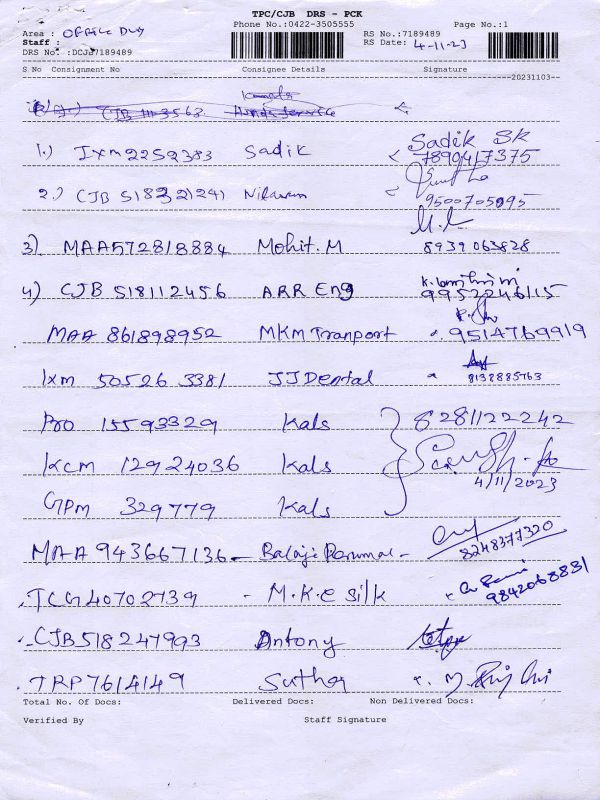 TPC/CJB DRS - PCK
Phone No.:0422-3505555 Page No.:1
Area : OFFICE DLY RS No.:7189489
Staff : RS Date: 4-11-23
DRS No. :DCJB7189489
S No Consignment No Consignee Details Signature
20231103
CJB 1113563
1.) Ixm 2252383 Sadik Sadik SK
7890417375
2.) CJB 518321241 Nilavan
9500705095
3) MAA572818884 Mohit.M 8939063828
4) CJB 518112456 ARR Eng 9952246115
MAA 861898952 MKM Tranport 9514769919
Ixm 50526 3381 JJDental 8132885763
Pro 15593329 Kals 8281122242
KCM 12924036 Kals
4/11/2023
GPM 329779 Kals
MAA 943667136 - Balaji Perumal -
8248377320
TCG40702739 - M.K.C Silk 9842068831
CJB518247993 Antony
TRP7614149 Suthor
Total No. Of Docs: Delivered Docs: Non Delivered Docs:
Verified By Staff Signature